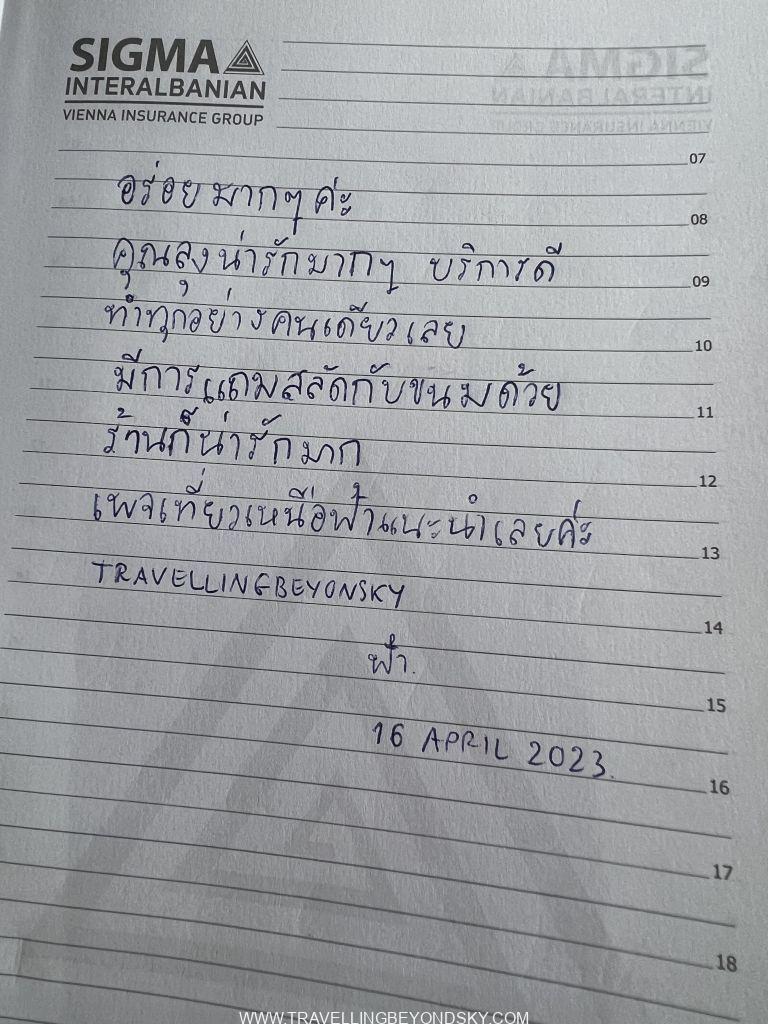 SIGMA
INTERALBANIAN
VIENNA INSURANCE GROUP
07
อร่อยมากๆ ค่ะ
08
คุณลุงน่ารักมากๆ บริการดี
09
ทำทุกอย่างคนเดียวเลย
10
มีการแถมสลัดกับขนมด้วย
11
ร้านก็น่ารักมาก
12
เพจเที่ยวเหนือฟ้าแนะนำเลยค่ะ
13
TRAVELLINGBEYONSKY
14
ฟ้า.
15
16 APRIL 2023.
16
17
18
WWW.TRAVELLINGBEYONDSKY.COM